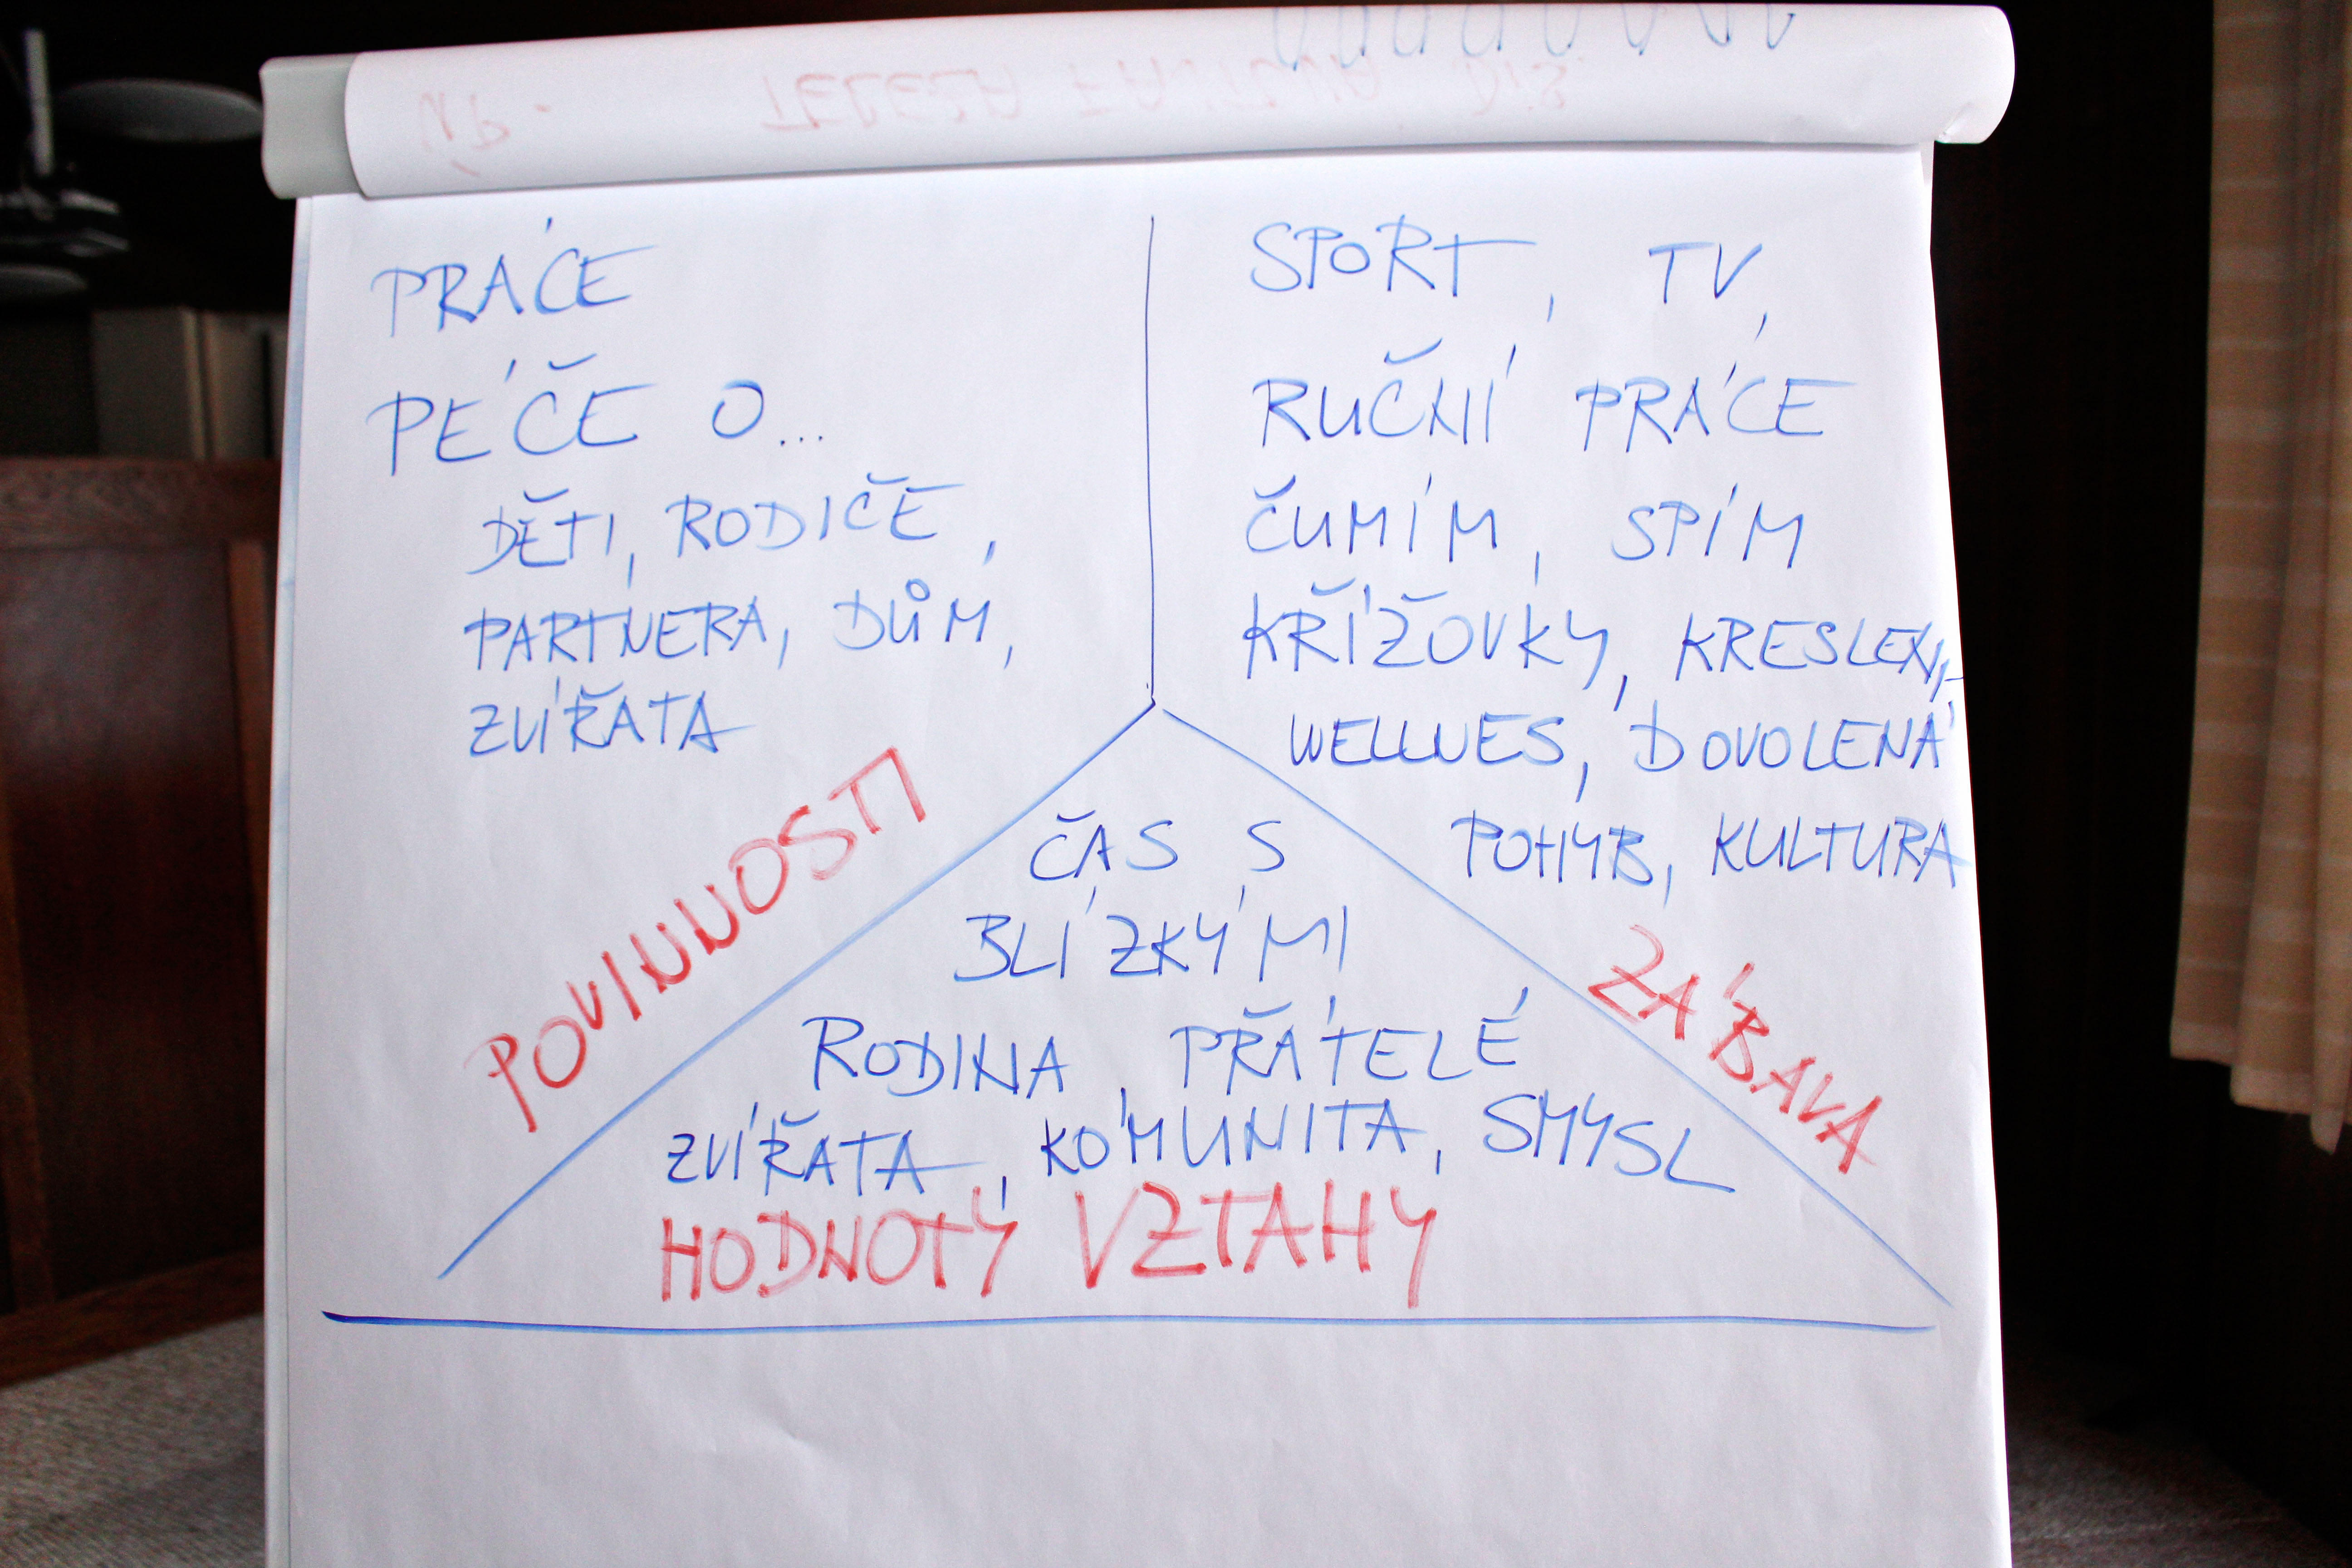 PRÁCE
PÉČE O...
DĚTI, RODIČE,
PARTNERA, DŮM,
ZVÍŘATA
POVINNOSTI
SPORT, TV,
RUČNÍ PRÁCE
ČUMÍM, SPÍM
KŘÍŽOVKY, KRESLENÍ,
WELLNES, DOVOLENÁ
POHYB, KULTURA
ZÁBAVA
ČAS S
BLÍZKÝMI
RODINA, PŘÁTELÉ
ZVÍŘATA, KOMUNITA, SMYSL
HODNOTY VZTAHY